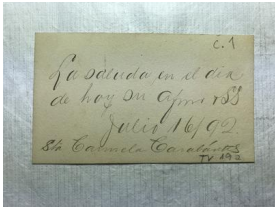 C. 1
La saluda en el dia
de hoy su afmo SS
Julio 16/92.
Sta Carmela Carabantes
TV 192